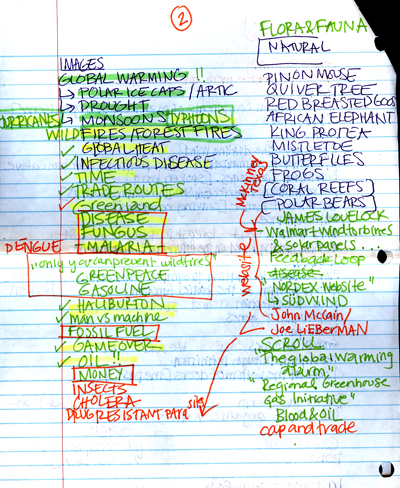 2
IMAGES
GLOBAL WARMING !!
→ POLAR ICE CAPS / ARTIC
→ DROUGHT
HURRICANES → MONSOONS TYPHOONS
WILDFIRES/FOREST FIRES
✓ GLOBAL HEAT
✓ INFECTIOUS DISEASE
✓ TIME
✓ TRADE ROUTES
✓ Greenland
DISEASE
FUNGUS
DENGUE MALARIA
"only you can prevent wildfires"
GREENPEACE
GASOLINE
✓ HALIBURTON
✓ man vs machine
FOSSIL FUEL
✓ GAMEOVER
✓ OIL !!
MONEY
INSECTS
CHOLERA
DRUG RESISTANT PARA sites
FLORA & FAUNA
NATURAL
PINON MOUSE
QUIVER TREE
RED BREASTED GOOS
AFRICAN ELEPHANT
KING PROTEA
MISTLETOE
BUTTERFLIES
FROGS
CORAL REEFS
POLAR BEARS
JAMES LOVELOCK
Walmart windturbines
& solar panels ...
Feedback Loop
disease
"NORDEX Website"
↳ SÜDWIND
John McCain/
Joe LIEBERMAN
SCROLL
"The global warming
alarm"
"Regional Greenhouse
Gas Initiative"
Blood & Oil
cap and trade
website